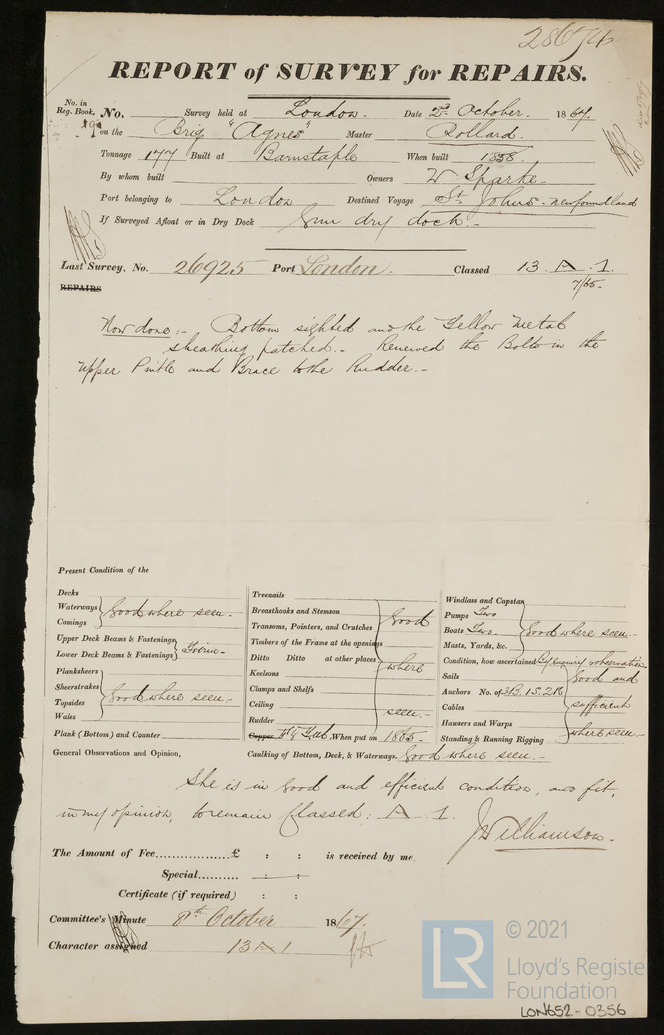 28674
REPORT of SURVEY for REPAIRS.
No. in Reg. Book, No. Survey held at London. Date 2nd October. 1867.
on the Brig "Agnes" Master Rollard.
Tonnage 177 Built at Barnstaple When built 1838.
By whom built Owners W Sparke.
Port belonging to London Destined Voyage St Johns. Newfoundland
If Surveyed Afloat or in Dry Dock dry dock.
Last Survey, No. 26925 Port London. Classed 13. A. 1.
7/65.
REPAIRS
Now done:- Bottom sighted and the Yellow Metal
sheathing patched.- Renewed the Bolts in the
upper Pintle and Brace to the Rudder.-
Present Condition of the
Decks
Waterways
Comings
Good where seen.
Upper Deck Beams & Fastenings
Lower Deck Beams & Fastenings
Planksheers
Sheerstrakes
Topsides
Wales
Good where seen
Plank (Bottom) and Counter
General Observations and Opinion,
Treenails
Breasthooks and Stemson
Transoms, Pointers, and Crutches
Timbers of the Frame at the openings
Ditto Ditto at other places
Keelsons
Clamps and Shelfs
Ceiling
Rudder
Good
where
seen.-
Copper , When put on 1865.-
Caulking of Bottom, Deck, & Waterways. Good where seen.-
Windlass and Capstan
Pumps Two
Boats Two.
Masts, Yards, &c.
Good where seen.
Condition, how ascertained By enquiry & observation
Sails
Anchors No. of 3B. 1S. 2K
Cables
Hausers and Warps
Standing & Running Rigging
Good and
sufficient
where seen.-
She is in good and efficient condition, and fit,
in my opinion, to remain Classed: A 1.
J Williamson.
The Amount of Fee...............£ : : is received by me.
Special......... : :
Certificate (if required) : :
Committee's Minute 8th October 1867.
Character assigned 13 A 1
LR
© 2021
Lloyd's Register
Foundation
LON652-0356